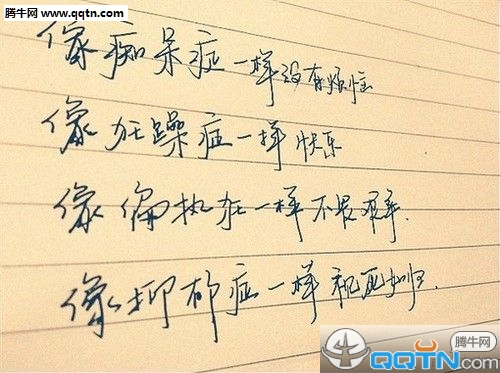 腾牛网
www.qqtn.com
像痴呆症一样没有烦恼
像狂躁症一样快乐
像偏执狂一样不畏艰辛.
像抑郁症一样视死如归.
腾牛网
QQTN.com